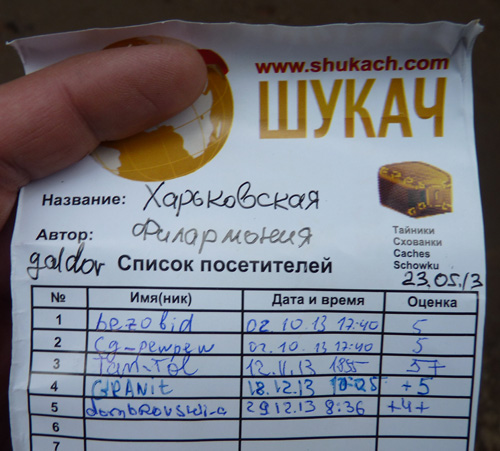 www.shukach.com
ШУКАЧ
Название: Харьковская
Автор: Филармония
Тайники
Схованки
Caches
Schowku
goldor Список посетителей 23.05.13
№ Имя(ник) Дата и время Оценка
1 bezobid 02.10.13 17:40 5
2 cg-penpen 02.10.13 17:40 5
3 12.11.13 1855 5+
4 GRANIT 18.12.13 5
5 dombrovski-a 29.12.13 8:36 +4+
6
7